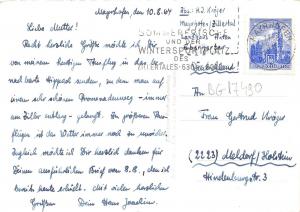 Mayrhofen, den 10.8.64
Liebe Mutter!
Recht herzliche Grüße möchte ich Dir
von meinem heutigen Ausflug in das be-
nachbarte Hippach senden, zu dem man auf
einem sehr schönen Promenadenweg immer
am Ziller entlang gelangt. In größeren Aus-
flügen ist das Wetter immer noch zu unsicher.
Zugleich möchte ich Dir herzlich danken für
Deinen ausführlichen Brief vom 8.8., den ich
bereits heute erhielt. Mit vielen herzlichen
Grüßen Dein Hans Joachim
Abs.: H.J. Kröger
Mayrhofen/Zillertal
SOMMERFRISCHE
UND DER
WINTERSPORTPLATZ
DES
ZILLERTALES 630
BG-17490
Frau Gertrud Kröger
(2223) Meldorf/Holstein
Hindenburgstr. 3